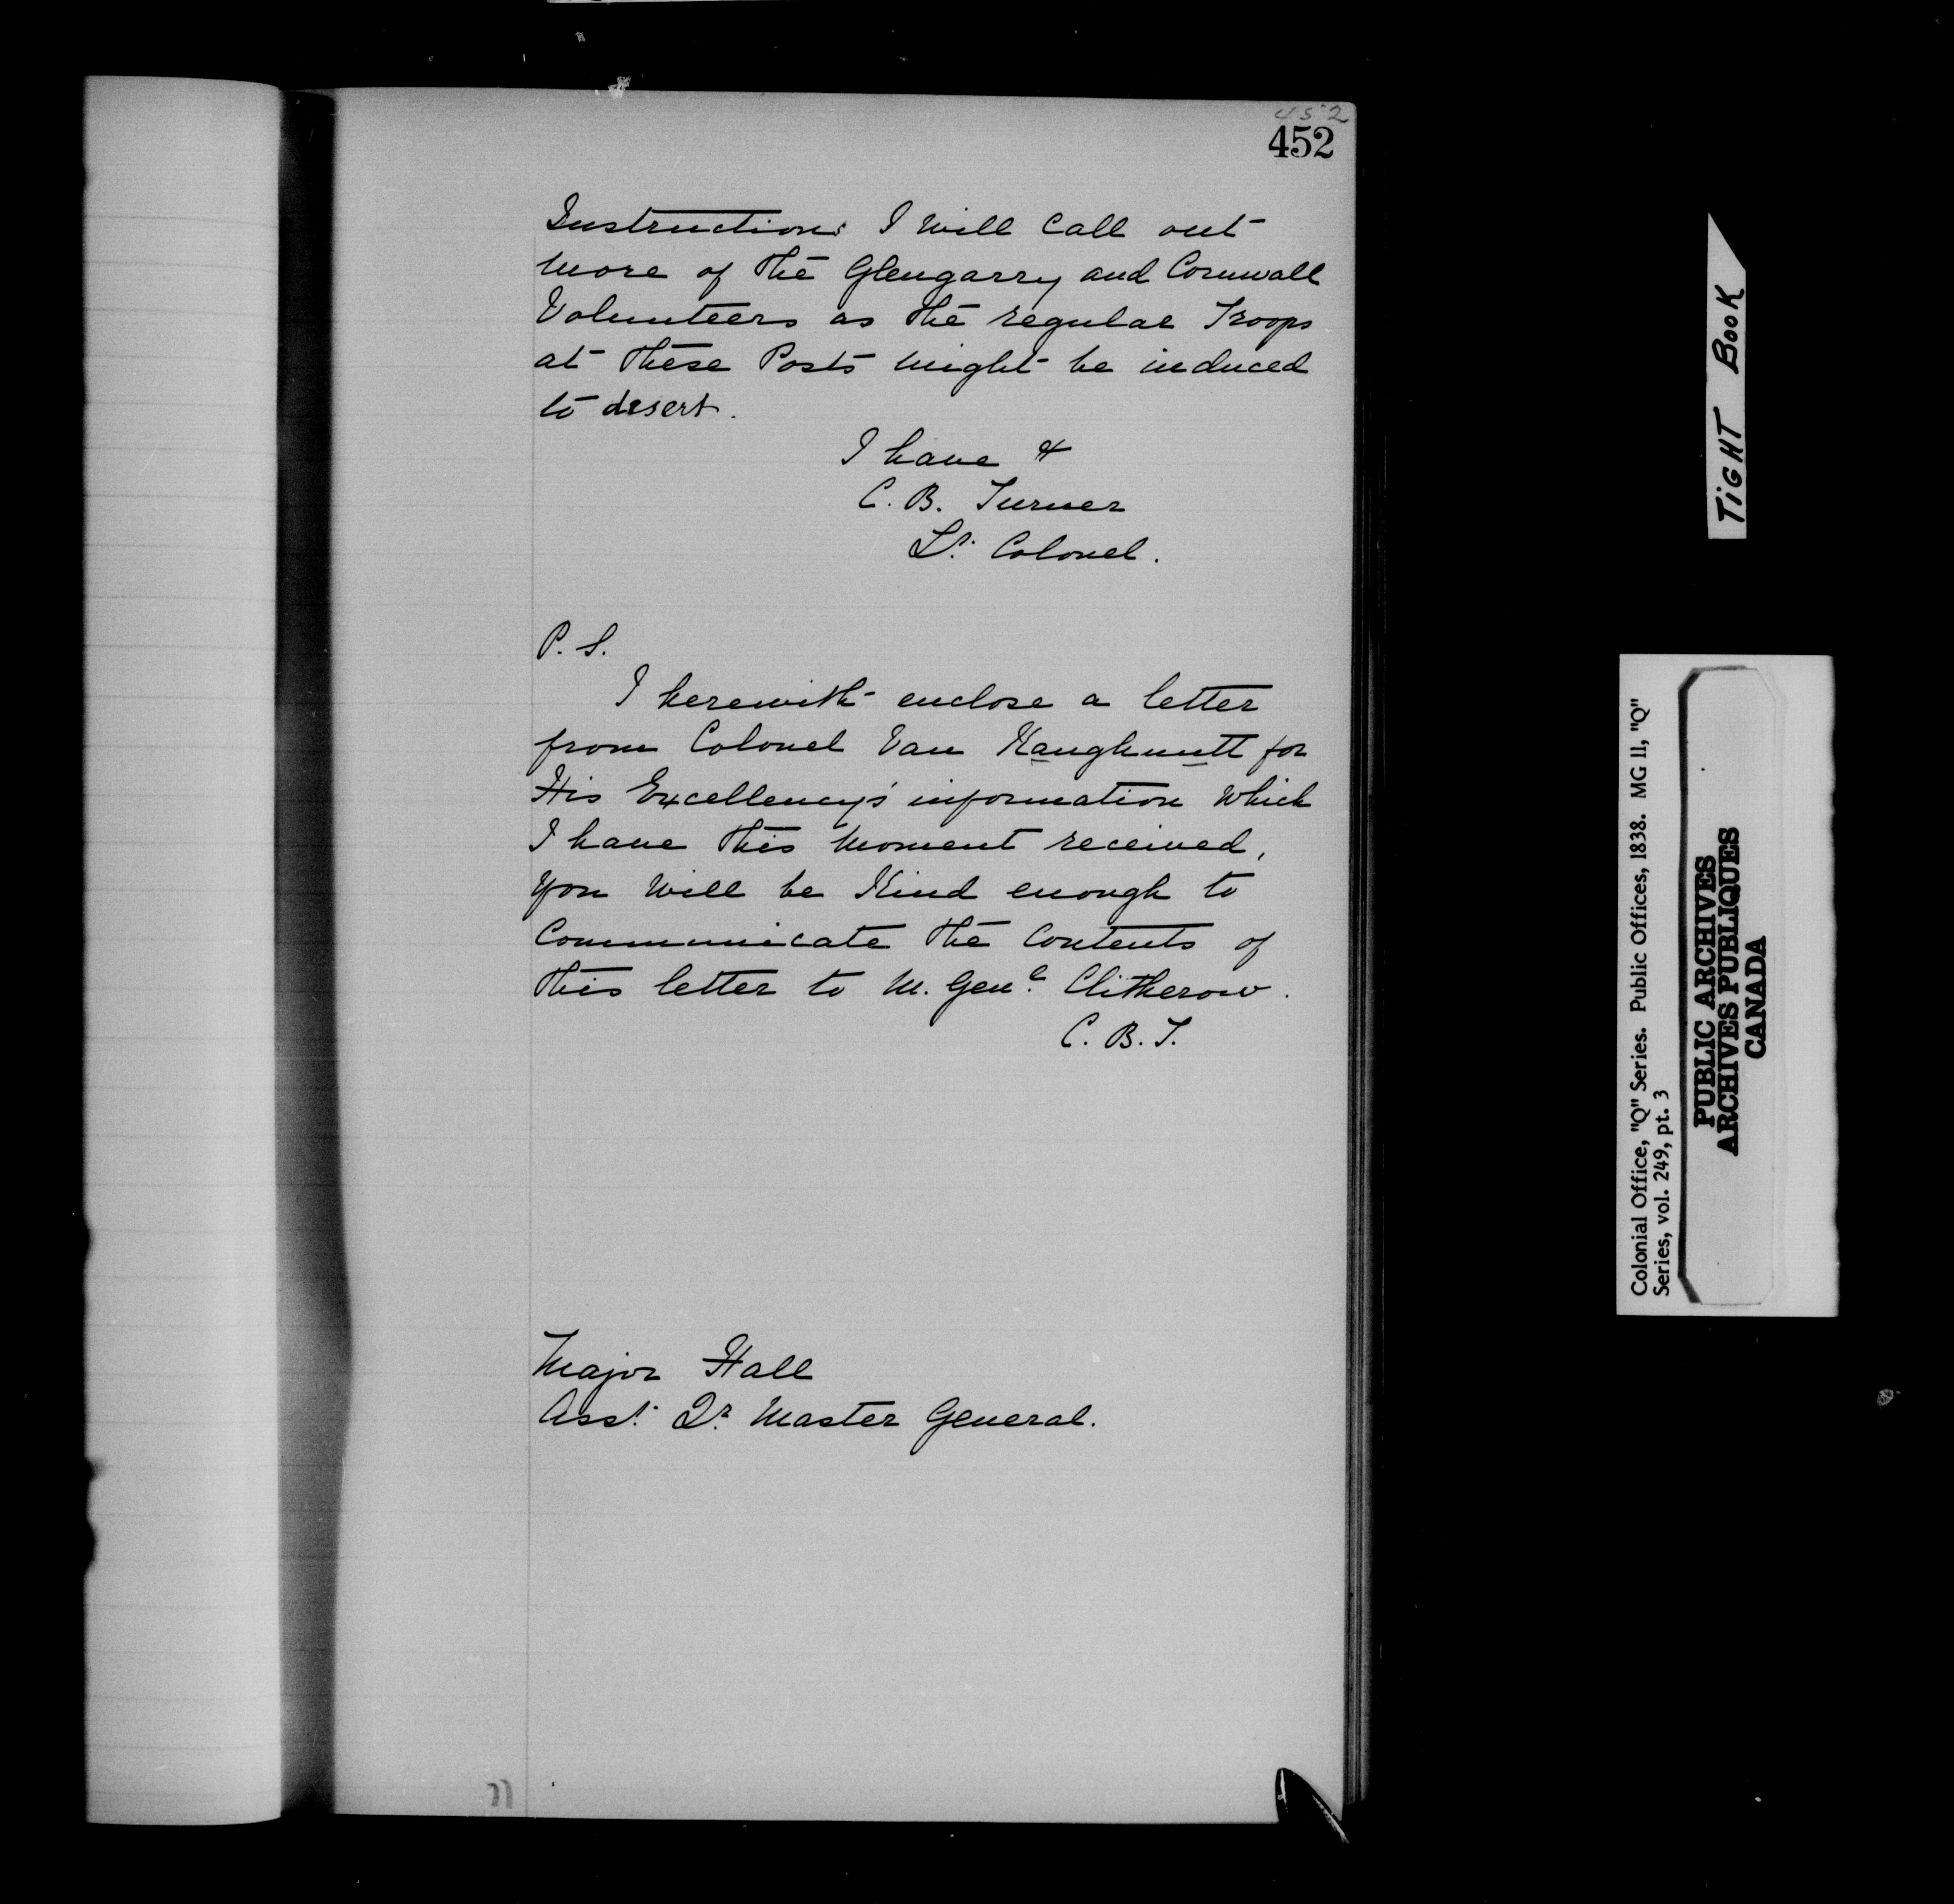 452
452
Instructions I will call out
more of the Glengarry and Cornwall
Volunteers as the regular Troops
at these Posts might be induced
to desert.
I have &
C. B. Turner
Lt. Colonel.
P. S.
I herewith enclose a letter
from Colonel Van Kaughnutt for
His Excellency's information which
I have this moment received,
you will be kind enough to
Communicate the Contents of
this letter to M. Genl. Clitherow.
C. B. T.
Major Hall
Asst. Qr. Master General.
TIGHT BOOK
Colonial Office, "Q" Series. Public Offices, 1838. MG 11, "Q"
Series, vol. 249, pt. 3
PUBLIC ARCHIVES
ARCHIVES PUBLIQUES
CANADA